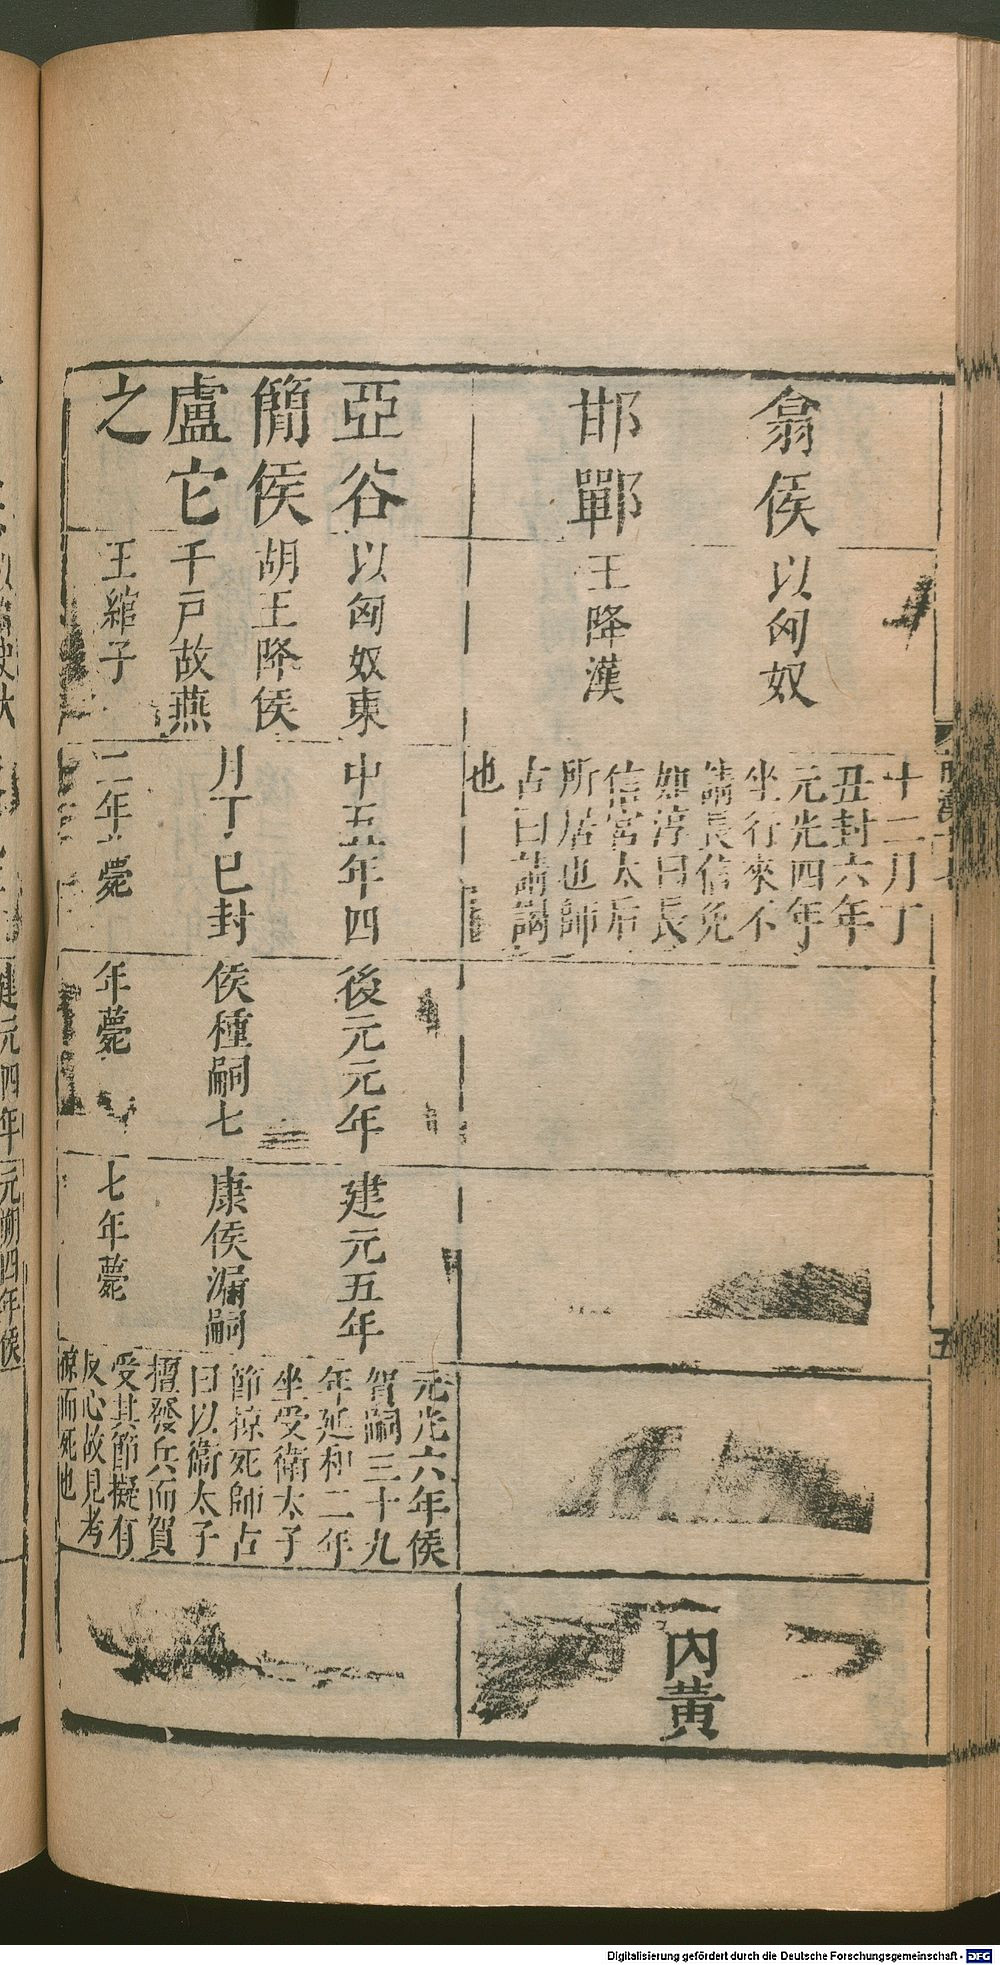 翕侯
邯鄲
以匈奴
王降漢
十二月丁
丑封六年
元光四年
坐行來不
請長信免
如淳曰長
信宮太后
所居也師
古曰請謁
也
內黃
亞谷
簡侯
盧它
之
以匈奴東
胡王降侯
千戶故燕
王綰子
中五年四
月丁巳封
二年薨
後元元年
侯種嗣七
年薨
建元五年
康侯漏嗣
七年薨
元光六年侯
賀嗣三十九
年延和二年
坐受衛太子
節掠死師古
曰以衛太子
擅發兵而賀
受其節擬有
反心故見考
掠而死也
五
建元四年
元朔四年侯
Digitalisierung gefördert durch die Deutsche Forschungsgemeinschaft - DFG